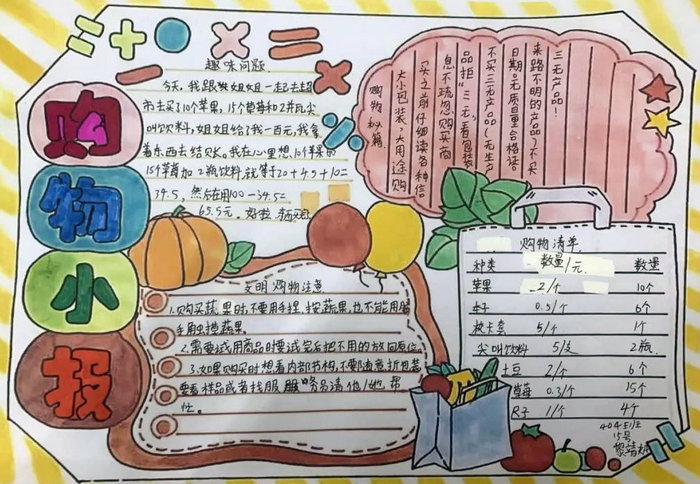 购
物
小
报
趣味问题
今天,我跟姐姐一起去超
市去买了10个苹果,15个草莓和2并瓦尖
叫饮料,姐姐给了我一百元,我拿
着东西去结贝长。我在心里想,10个苹果的
15个草莓加2瓶饮料,就等于20+4.5+10=
34.5,然后在用100-34.5=
65.5元。
三无产品!
来路不明的产品)不买
日期。无质日量合格证。
不买三无产品(无生产
品拒“三无”。看包装
息不疏忽购买商
买之前仔细读各种信
大小包装,大用途购
购物秘籍
文明购物注意
1.购买蔬果时不要用手捏、按蔬果,也不能用
手角虫摸蔬果。
2.需要试用商品时要试完后把不用的放回原位。
3.如果购买时想看内部结构,不要随意拆包装
要看样品或者找服务员请他/她帮
忙。
购物清单
种类 数量/元 数量
苹果 2/个 10个
本子 0.5/个 6个
校卡套 5/个 1个
尖叫饮料 5/支 2瓶
土豆 2/个 6个
草莓 0.3/个 15个
尺子 1/个 4个
404王力王
15号